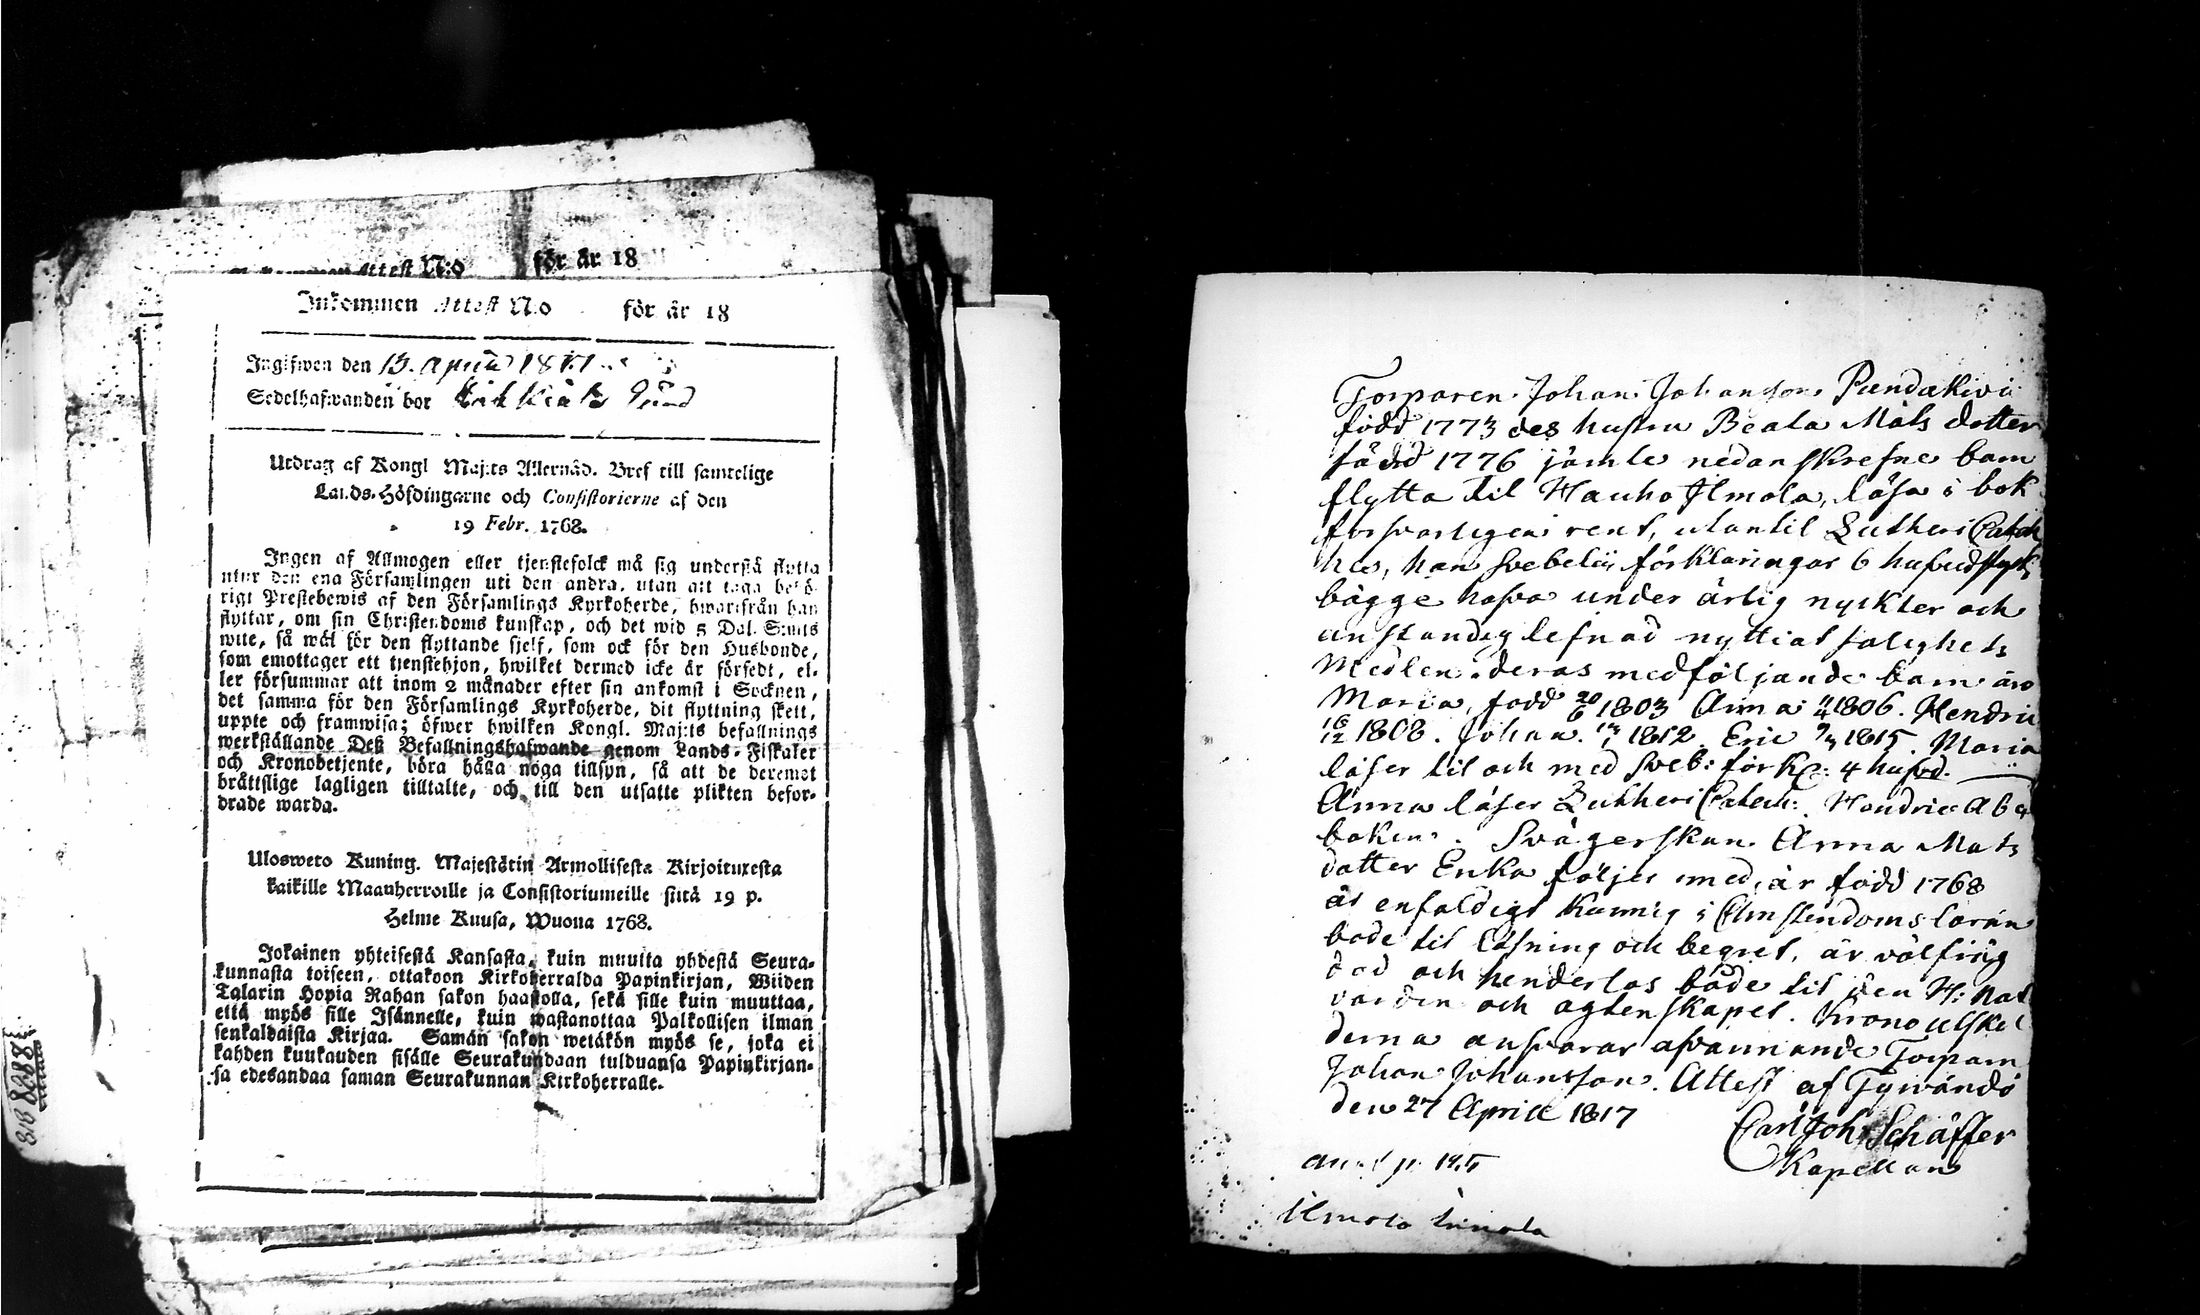 för år 18
Inkommen Attest N:o för år 18
Ingifwen den 13. april
Sedelhafwanden bor
Utdrag af Kongl Maj:ts Allernåd. Bref till samtelige
Lands-Höfdingarne och Consistorierne af den
19 Febr. 1768.
Ingen af Allmogen eller tjenstefolck må sig understå flytta
utur den ena Församlingen uti den andra, utan att taga behö-
rigt Prestebewis af den Församlings Kyrkoherde, hwarifrån han
flyttar, om sin Christendoms kunskap, och det wid 5 Dal. S:mts
wite, så wäl för den flyttande sjelf, som ock för den Husbonde,
som emottager ett tjenstehjon, hwilket dermed icke är försedt, el-
ler försummar att inom 2 månader efter sin ankomst i Socknen,
det samma för den Församlings Kyrkoherde, dit flyttning skett,
uppte och framwisa; öfwer hwilken Kongl. Maj:ts befallnings
werkställande Deß Befallningshafwande genom Lands-Fiskaler
och Kronobetjente, böra hålla noga tillsyn, så att de deremot
bråttslige lagligen tilltalte, och till den utsatte plikten befor-
drade warda.
Ulosweto Kuning. Majestätin Armollisesta Kirjoituxesta
kaikille Maanherroille ja Consistoriumeille siitä 19 p.
Helme Kuusa, Wuona 1768.
Jokainen yhteisestä Kansasta, kuin muutta yhdestä Seura-
kunnasta toiseen, ottakoon Kirkoherralda Papinkirjan, Wiiden
Talarin Hopia Rahan sakon haastolla, sekä sille kuin muuttaa,
että myös sille Isännelle, kuin wastanottaa Palkollisen ilman
senkaldaista Kirjaa. Samän sakon wetäkön myös se, joka ei
kahden kuukauden sisälle Seurakundaan tulduansa Papinkirjan-
sa edesandaa saman Seurakunnan Kirkoherralle.
Torparen Johan Johansson Pundakivi
född 1773 des hustru Beata Mats dotter
född 1776 jämte nedanskrefne barn
flytta til Hauho Ilmola, läsa i bok
försvarligen rent, utantil Lutheri Catech
hes, han Svebelii förklaringar 6 hufvudstyck,
bägge hafva under ärlig nyckter och
anständig lefnad nyttiat salighets
Medlen. deras medföljande barn äro
Maria, född 20/6 1803 Anna 11/4 1806. Hendric
16/12 1808. Johan 13/1 1812 Eric 9/3 1815. Maria
läser til och med Sveb: förkl: 4 hufvd.
Anna läser Lutheri Catech: Hendric Abc
boken. Svägerskan Anna Mats
dotter Enka följer med, är född 1768
är enfaldigt kunnig i Christendoms läran
både til läsning och begrep, är välfräg
dad och henderlös både til den H: Nat
varden och ägtenskapet. Krono utskyl
derna ansvarar afvannande Torparn
Johan Johansson. Attest af Tyrvändö
den 27 April 1817
Carl Joh. Schäffer
Kapellan
Ilmola